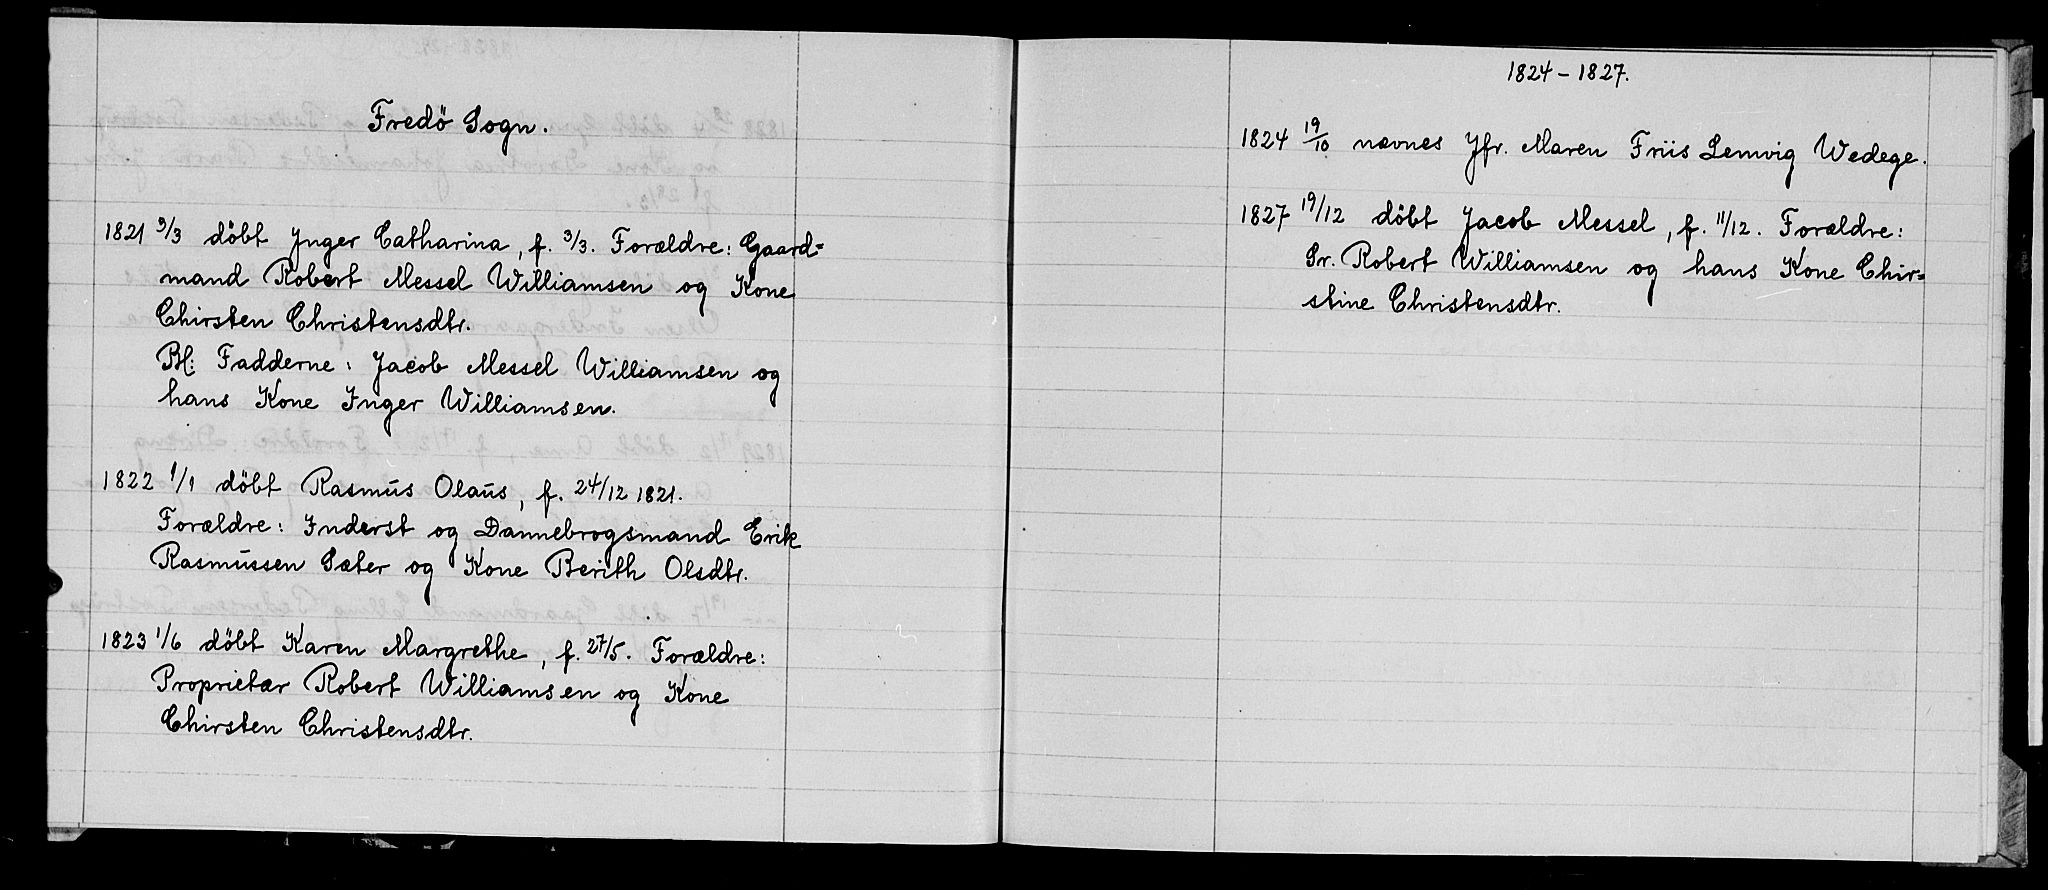 Fredö Sogn.
1821 3/3 döbt Jnger Catharina, f. 3/3. Forældre: Gaard=
mand Robert Messel Williamsen og Kone
Chirsten Christensdtr.
Bl: Fadderne: Jacob Messel Williamsen og
hans Kone Inger Williamsen.
1822 1/1 döbt Rasmus Olaus, f. 24/12 1821.
Forældre: Inderst og Dannebrogsmand Erik
Rasmussen Sæter og Kone Berith Olsdtr.
1823 1/6 döbt Karen Margrethe, f. 27/5. Forældre:
Proprietær Robert Williamsen og Kone
Chirsten Christensdtr.
1824 – 1827.
1824 19/10 nævnes Jfr. Maren Friis Lemvig Wedege.
1827 19/12 döbt Jacob Messel, f. 11/12. Forældre:
Sr. Robert Williamsen og hans Kone Chir=
stine Christensdtr.